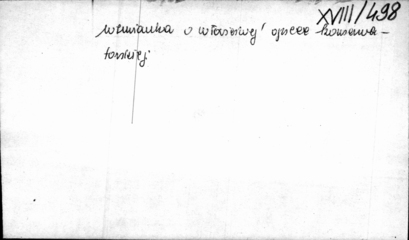 XVIII/498
wzmianka o właściwej opiece konserwa-
torskiej.